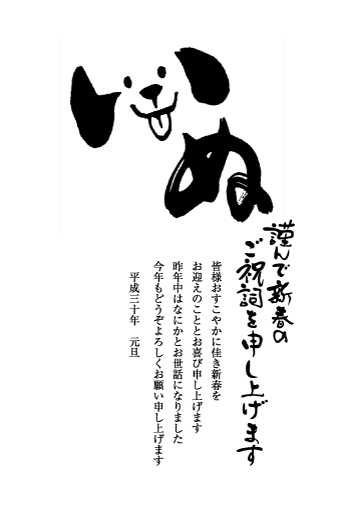 いぬ
謹んで新春の
ご祝詞を申し上げます
皆様おすこやかに佳き新春を
お迎えのこととお喜び申し上げます
昨年中はなにかとお世話になりました
今年もどうぞよろしくお願い申し上げます
平成三十年　元旦